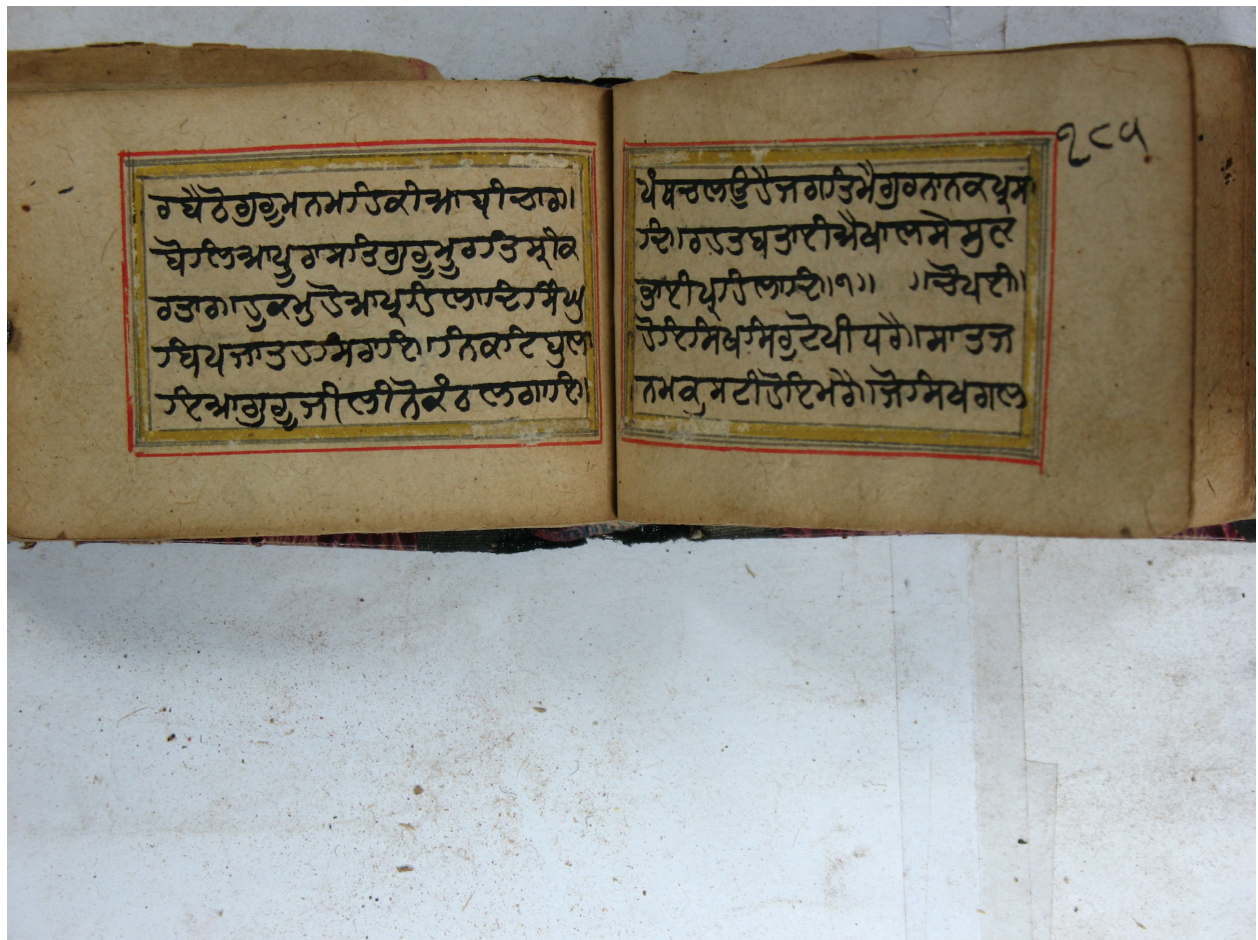 ਰਬੈਠੇਗੁਰੂਮਨਮਹਿਕੀਆਬੀਚਾਰ।
ਬੋਲਿਆਪੁਰਾਸਤਿਗੁਰੂਮੁਰਤਿਸ੍ਰੀਕ
ਰਤਾਰ।ਹੁਕਮੁਹੋਆਪ੍ਰਹਿਲਾਦਿਸਿੰਘੁ
ਬਪਜਾਤੁਹਸਿਰਾਇ।ਨਿਕਟਿਬੁਲਾ
ਇਆਗੁਰੂਜੀਲੀਨੋਕੰਠਲਗਾਇ।
੧੮੫
ਪੰਥਚਲਉਹੈਜਗਤਿਮੈਗੁਰਨਾਨਕਪ੍ਰਸਾ
ਦਿ।ਰਹਤਬਤਾਈਐਖਾਲਸੇਸੁਣ
ਭਾਈਪ੍ਰਹਿਲਾਦਿ॥੧॥ ॥ਚੋਪਈ॥
ਹੋਇਸਿਖਸਿਰੁਟੋਪੀਧਰੈ।ਸਾਤਜ
ਨਮਕੁਸਟੀਹੋਇਮਰੈ।ਜੋਸਿਖਗਲ